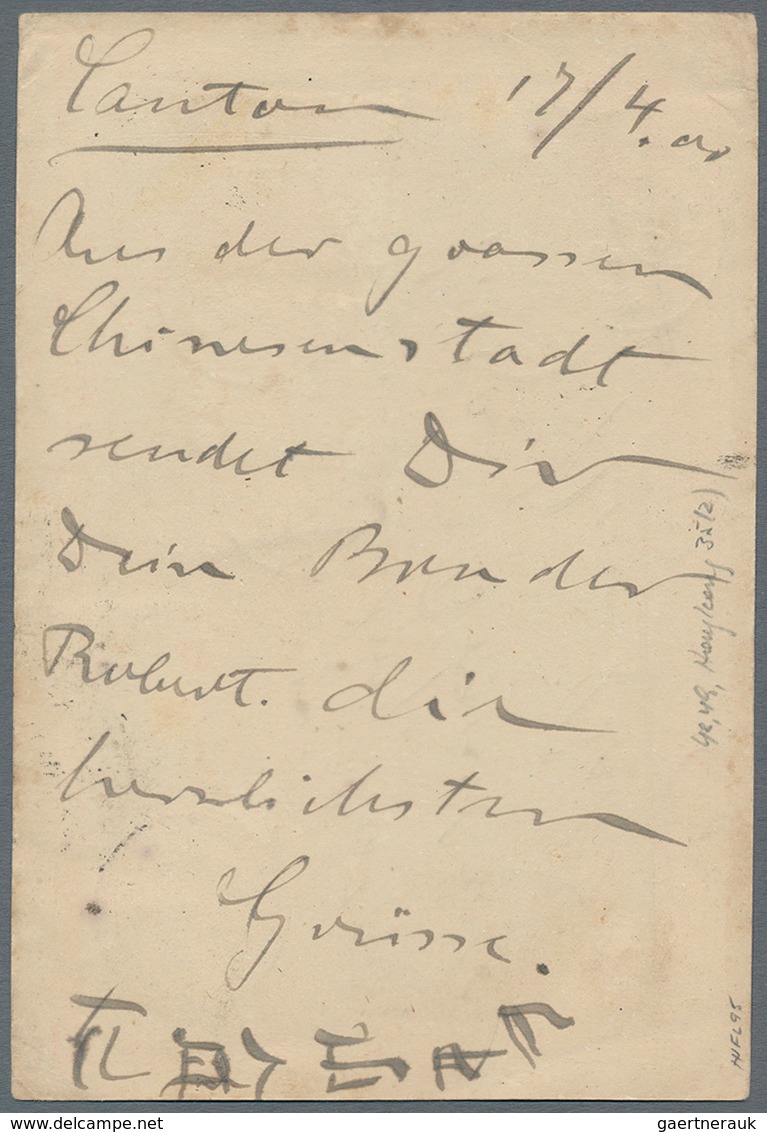 Canton 17/4.00
Aus der grossen
Chinesenstadt
sendet Dir
Dein Bruder
Robert. die
herzlichsten
Grüsse.
Hongkong 35(2)
gaertnerauk @ www.delcampe.net